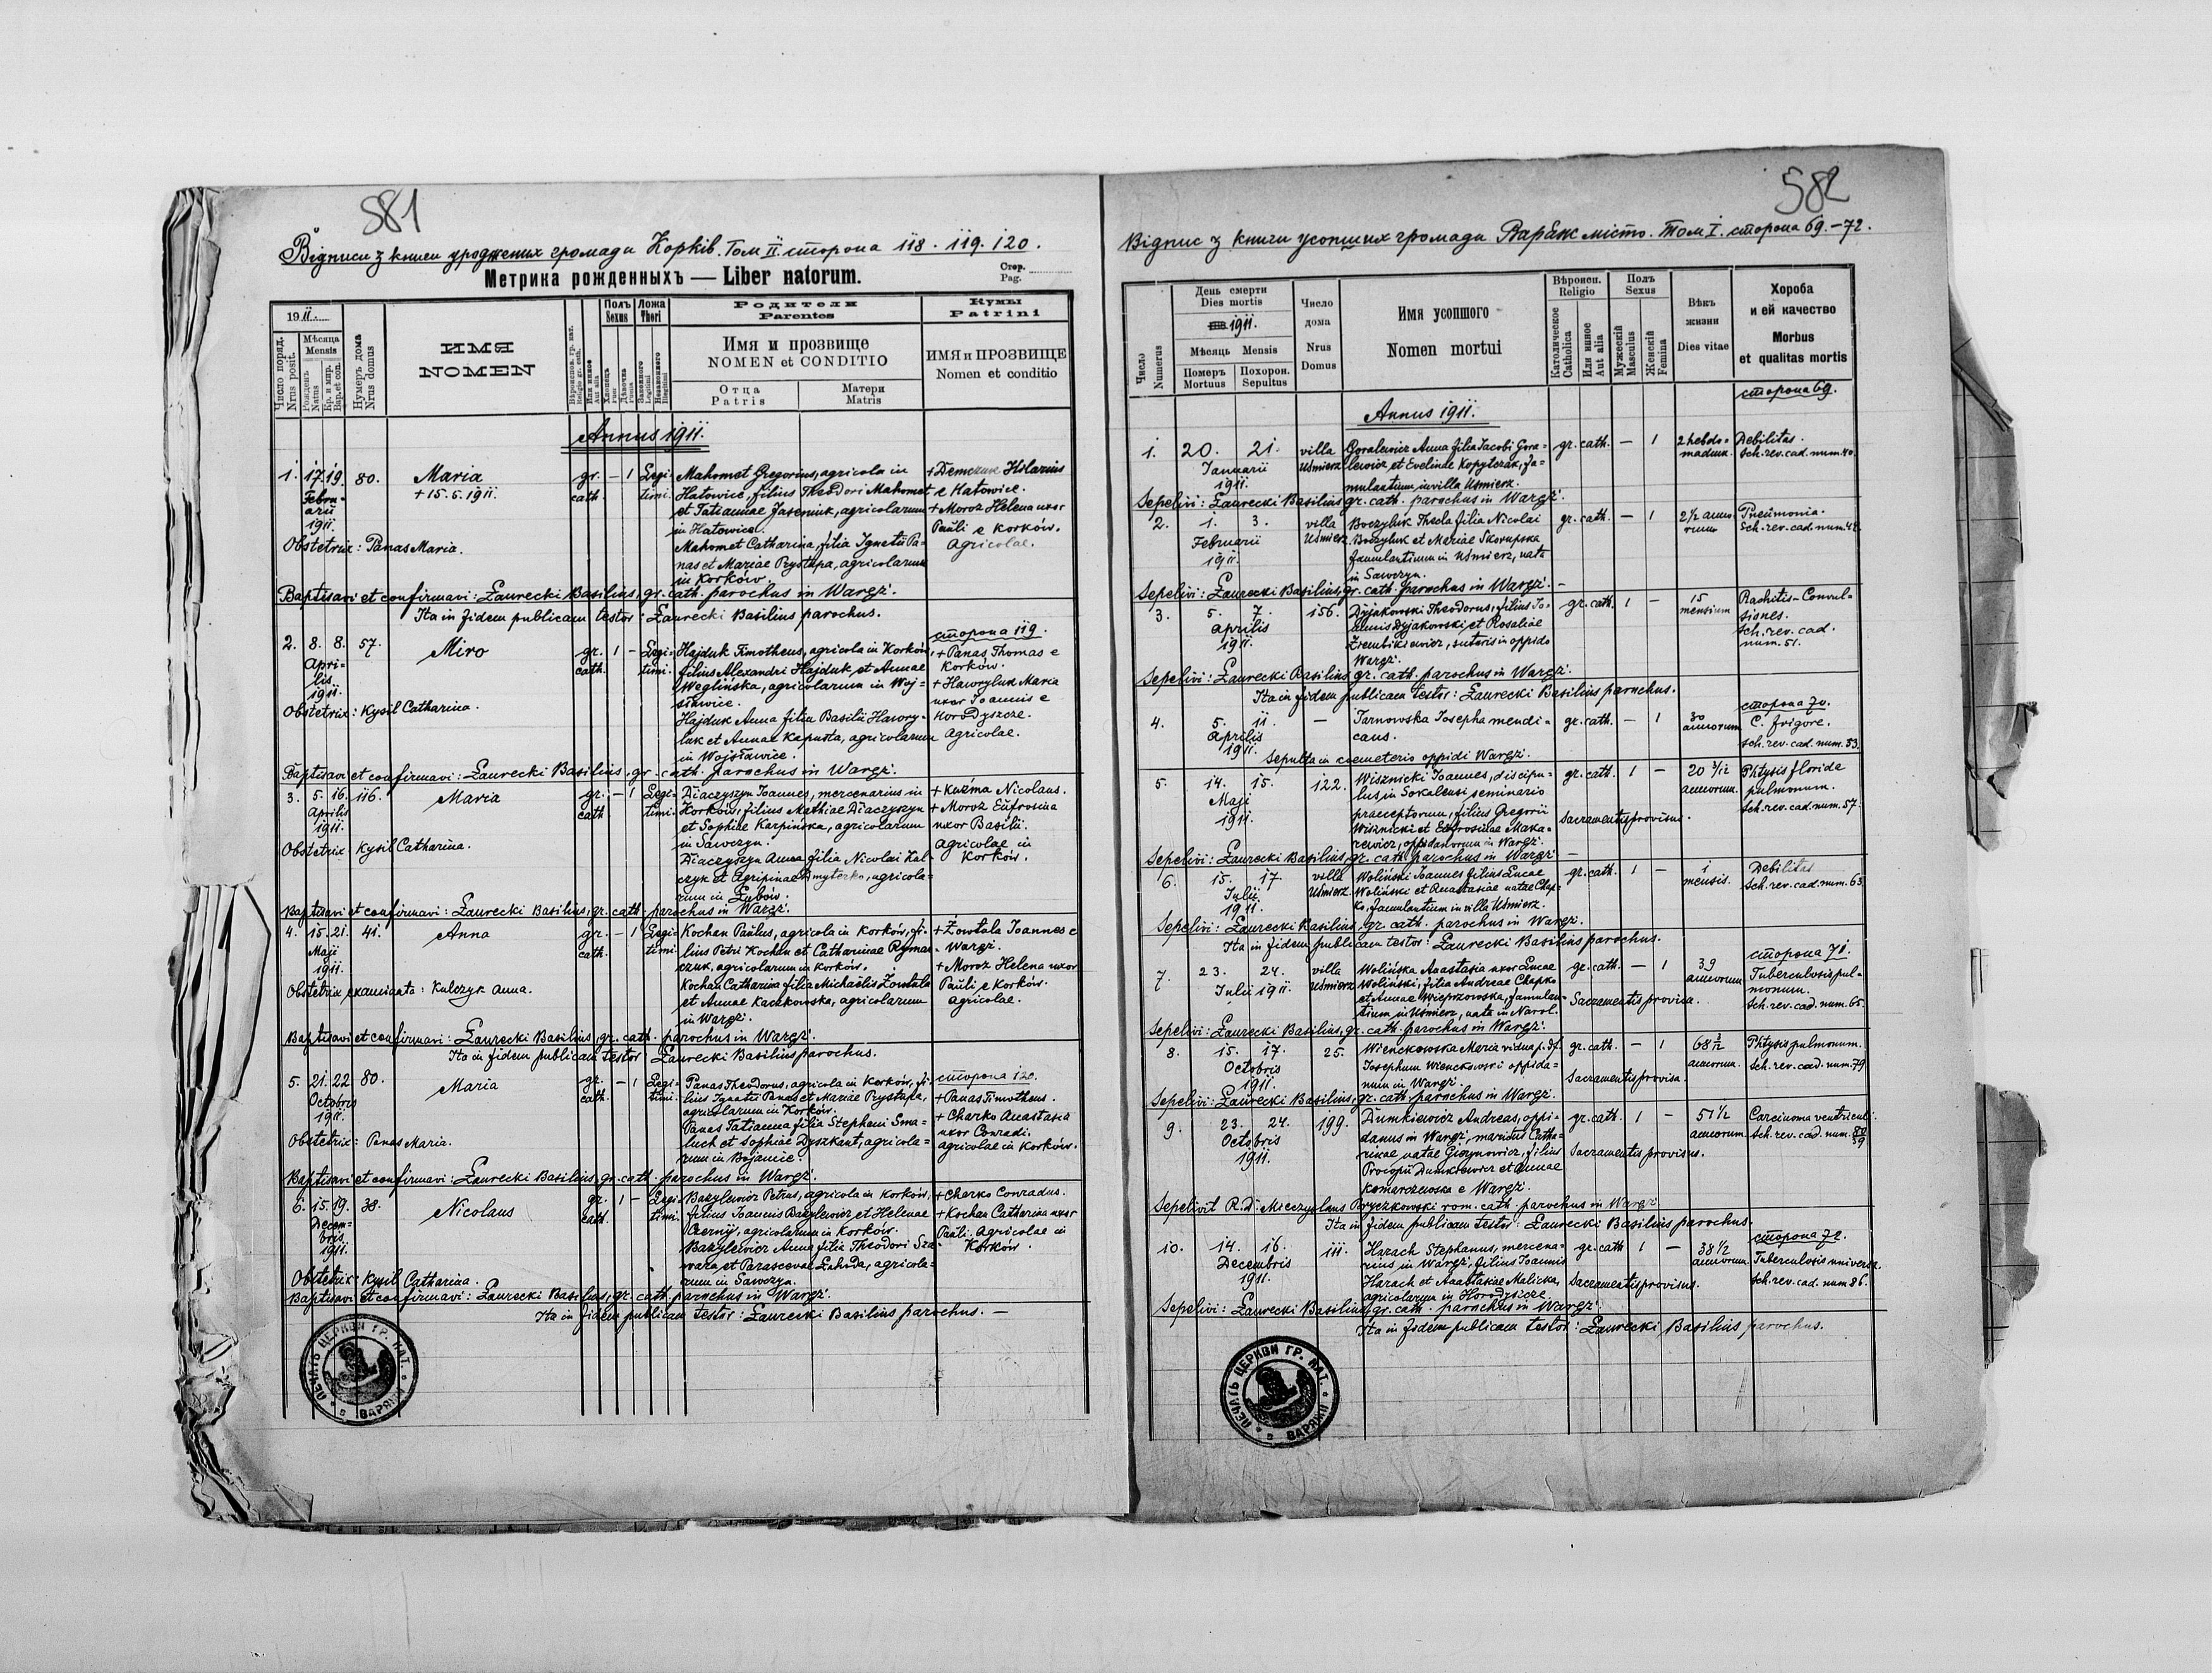 581
Відписи з книги уроджених громади Корків. Том II. сторона 118. 119. 120.
Метрика рожденныхъ — Liber natorum.
Стор.
Pag.
1911.
Число поряд.
Nrus posit.
Мѣсяца
Mensis
Рожденъ
Natus
Кр. и мир.
Bap. et con.
Нумеръ дома
Nrus domus
ИМЯ
NOMEN
Вѣроиспов. гр. кат.
Religio gr. cath.
Или иное
Aut alia
Полъ
Sexus
Хлопецъ
Puer
Дѣвочка
Puella
Ложа
Thori
Законного
Legitimi
Незаконного
Illegitimi
Родители
Parentes
Имя и прозвище
NOMEN et CONDITIO
Отца
Patris
Матери
Matris
Кумы
Patrini
ИМЯ и ПРОЗВИЩЕ
Nomen et conditio
Annus 1911.
1. 17. 19. Februarii 1911. 80. Maria + 15.5.1911. gr. cath. — 1 Legitimi.
Mahomet Gregorius, agricola in
Hatowice, filius Theodori Mahomet
et Tatiannae Jaseniuk, agricolarum
in Hatowice.
Mahomet Catharina, filia Ignatii Pa-
nas et Mariae Prystupa, agricolarum
in Korków.
+ Demczuk Hilarius
e Hatowice.
+ Moroz Helena uxor
Pauli e Korków.
Agricolae.
Obstetrix: Panas Maria.
Baptisavi et confirmavi: Ławrecki Basilius, gr. cath. parochus in Waręż.
Ita in fidem publicam testor: Ławrecki Basilius parochus.
сторона 119.
2. 8. 8. Aprilis 1911. 57. Miro gr. cath. 1 — Legitimi.
Hajduk Timotheus, agricola in Korków,
filius Alexandri Hajduk et Annae
Weglińska, agricolarum in Woj-
sławice.
Hajduk Anna filia Basilii Hawry-
luk et Annae Kapusta, agricolarum
in Wojsławice.
+ Panas Thomas e
Korków.
+ Hawryluk Maria
uxor Joannis e
Horodyszcze.
Agricolae.
Obstetrix: Kysil Catharina.
Baptisavi et confirmavi: Ławrecki Basilius, gr. cath. parochus in Waręż.
3. 5. 16. Aprilis 1911. 116. Maria gr. cath. — 1 Legitimi.
Diaczyszyn Joannes, mercenarius in
Korków, filius Mathiae Diaczyszyn
et Sophiae Karpińska, agricolarum
in Sawczyn.
Diaczyszyn Anna filia Nicolai Hal-
czyk et Agripinae Dmyterko, agricola-
rum in Łubów.
+ Kuźma Nicolaus.
+ Moroz Eufrosina
uxor Basilii.
Agricolae in
Korków.
Obstetrix Kysil Catharina.
Baptisavi et confirmavi: Ławrecki Basilius, gr. cath. parochus in Waręż.
4. 15. 21. Maji 1911. 41. Anna gr. cath. — 1 Legitimi.
Kochan Paulus, agricola in Korków, fi-
lius Petri Kochan et Catharinae Ryman-
czuk, agricolarum in Korków.
Kochan Catharina filia Michaëlis Żowtala
et Annae Kaczkowska, agricolarum
in Waręż.
+ Żowtala Joannes e
Waręż.
+ Moroz Helena uxor
Pauli e Korków.
Agricolae.
Obstetrix examinata: Kulczyk Anna.
Baptisavi et confirmavi: Ławrecki Basilius, gr. cath. parochus in Waręż.
Ita in fidem publicam testor: Ławrecki Basilius parochus.
сторона 120.
5. 21. 22. Octobris 1911. 80. Maria gr. cath. — 1 Legitimi.
Panas Theodorus, agricola in Korków, fi-
lius Ignatii Panas et Mariae Prystupa,
agricolarum in Korków.
Panas Tatianna filia Stephani Sma-
luch et Sophiae Dyszkant, agricola-
rum in Bojanice.
+ Panas Timotheus.
+ Charko Anastasia
uxor Conradi.
agricolae in Korków.
Obstetrix: Panas Maria.
Baptisavi et confirmavi: Ławrecki Basilius, gr. cath. parochus in Waręż.
6. 15. 19. Decembris 1911. 38. Nicolaus gr. cath. 1 — Legitimi.
Bazylewicz Petrus, agricola in Korków,
filius Joannis Bazylewicz et Helenae
Czernij, agricolarum in Korków.
Bazylewicz Anna filia Theodori Sza-
wała et Parascevae Łahoda, agricola-
rum in Sawczyn.
+ Charko Conradus.
+ Kochan Catharina uxor
Pauli. Agricolae in
Korków.
Obstetrix: Kysil Catharina.
Baptisavi et confirmavi: Ławrecki Basilius, gr. cath. parochus in Waręż.
Ita in fidem publicam testor: Ławrecki Basilius parochus. —
ПЕЧАТЬ ЦЕРКВИ ГР. КАТ. В ВАРЯЖИ
582
Відпис з книги усопших громади Варяж місто. Том I. сторона 69.–72.
Число
Numerus
День смерти
Dies mortis
1911.
Мѣсяць Mensis
Померъ
Mortuus
Похорон.
Sepultus
Число
дома
Nrus
Domus
Имя усопшого
Nomen mortui
Вѣроисп.
Religio
Католическое
Catholica
Или иное
Aut alia
Полъ
Sexus
Мужескій
Masculus
Женскій
Femina
Вѣкъ
жизни
Dies vitae
Хороба
и ей качество
Morbus
et qualitas mortis
сторона 69.
Annus 1911.
1. 20. 21. Januarii 1911. villa Uśmierz
Goralewicz Anna filia Jacobi Gora-
lewicz et Evelinae Kopytczak, fa-
mulantium in villa Uśmierz.
gr. cath. — 1 2 hebdo-
madum.
Debilitas.
Sch. rev. cad. num. 40.
Sepelivi: Ławrecki Basilius gr. cath. parochus in Waręż.
2. 1. 3. Februarii 1911. villa Uśmierz
Boczyluk Thecla filia Nicolai
Boczyluk et Mariae Skorupska
famulantium in Uśmierz, nata
in Sawczyn.
gr. cath. — 1 2½ anno-
rum
Pneumonia.
Sch. rev. cad. num. 42.
Sepelivi: Ławrecki Basilius, gr. cath. parochus in Waręż. —
3. 5. 7. Aprilis 1911. 156.
Dyjakowski Theodorus, filius Jo-
annis Dyjakowski et Rosaliae
Ziembikiewicz, sutoris in oppido
Waręż.
gr. cath. 1 — 15
mensium
Rachitis – Convul-
siones.
Sch. rev. cad.
num. 51.
Sepelivi: Ławrecki Basilius gr. cath. parochus in Waręż.
Ita in fidem publicam testor: Ławrecki Basilius parochus.
сторона 70.
4. 5. 11. Aprilis 1911. —
Tarnowska Josepha mendi-
cans.
gr. cath. — 1 30
annorum
C. frigore.
Sch. rev. cad. num. 53.
Sepulta in coemeterio oppidi Waręż.
5. 14. 15. Maji 1911. 122.
Wisznicki Joannes, discipu-
lus in Sokalensi seminario
praeceptorum, filius Gregorii
Wisznicki et Eufrosinae Maka-
rewicz, oppidanorum in Waręż.
gr. cath. 1 — 20 3/12
annorum.
Phtysis floride
pulmonum.
Sch. rev. cad. num. 57.
Sacramentis provisus.
Sepelivi: Ławrecki Basilius, gr. cath. parochus in Waręż —
6. 15. 17. Julii 1911. villa Uśmierz
Woliński Joannes filius Lucae
Woliński et Anastasiae natae Chap-
ko, famulantium in villa Uśmierz.
gr. cath. 1 — 1
mensis.
Debilitas
Sch. rev. cad. num. 63.
Sepelivi: Ławrecki Basilius, gr. cath. parochus in Waręż.
Ita in fidem publicam testor: Ławrecki Basilius parochus.
сторона 71.
7. 23. 24. Julii 1911. villa Uśmierz
Wolińska Anastasia uxor Lucae
Woliński, filia Andreae Chapko
et Annae Wieprzowska, famulan-
tium in Uśmierz, nata in Narol.
gr. cath. — 1 39
annorum
Tuberculosis pul-
monum.
Sch. rev. cad. num. 65.
Sacramentis provisa.
Sepelivi: Ławrecki Basilius, gr. cath. parochus in Waręż.
8. 15. 17. Octobris 1911. 25.
Wienckowska Maria vidua p. df.
Josephum Wienckowski oppida-
num in Waręż.
gr. cath. — 1 68
annorum.
Phtysis pulmonum.
Sch. rev. cad. num. 79
Sacramentis provisa.
Sepelivi: Ławrecki Basilius, gr. cath. parochus in Waręż.
9. 23. 24. Octobris 1911. 199.
Dumkiewicz Andreas, oppi-
danus in Waręż, maritus Catha-
rinae natae Giżynowicz, filius
Procopii Dumkiewicz et Annae
Komarzewska e Waręż.
gr. cath. 1 — 51½
annorum.
Carcinoma ventriculi.
Sch. rev. cad. num.
Sacramentis provisus.
Sepelivit R.d. Mieczyslaus Pyryczkowski rom. cath. parochus in Waręż
Ita in fidem publicam testor: Ławrecki Basilius parochus.
сторона 72.
10. 14. 16. Decembris 1911. 111.
Harach Stephanus, mercena-
rius in Waręż, filius Joannis
Harach et Anastasiae Malicka,
agricolarum in Horodyszcze.
gr. cath 1 — 38½
annorum
Tuberculosis universa.
Sch. rev. cad. num 86.
Sacramentis provisus.
Sepelivi: Ławrecki Basilius gr. cath. parochus in Waręż.
Ita in fidem publicam testor: Ławrecki Basilius parochus.
ПЕЧАТЬ ЦЕРКВИ ГР. КАТ. В ВАРЯЖИ